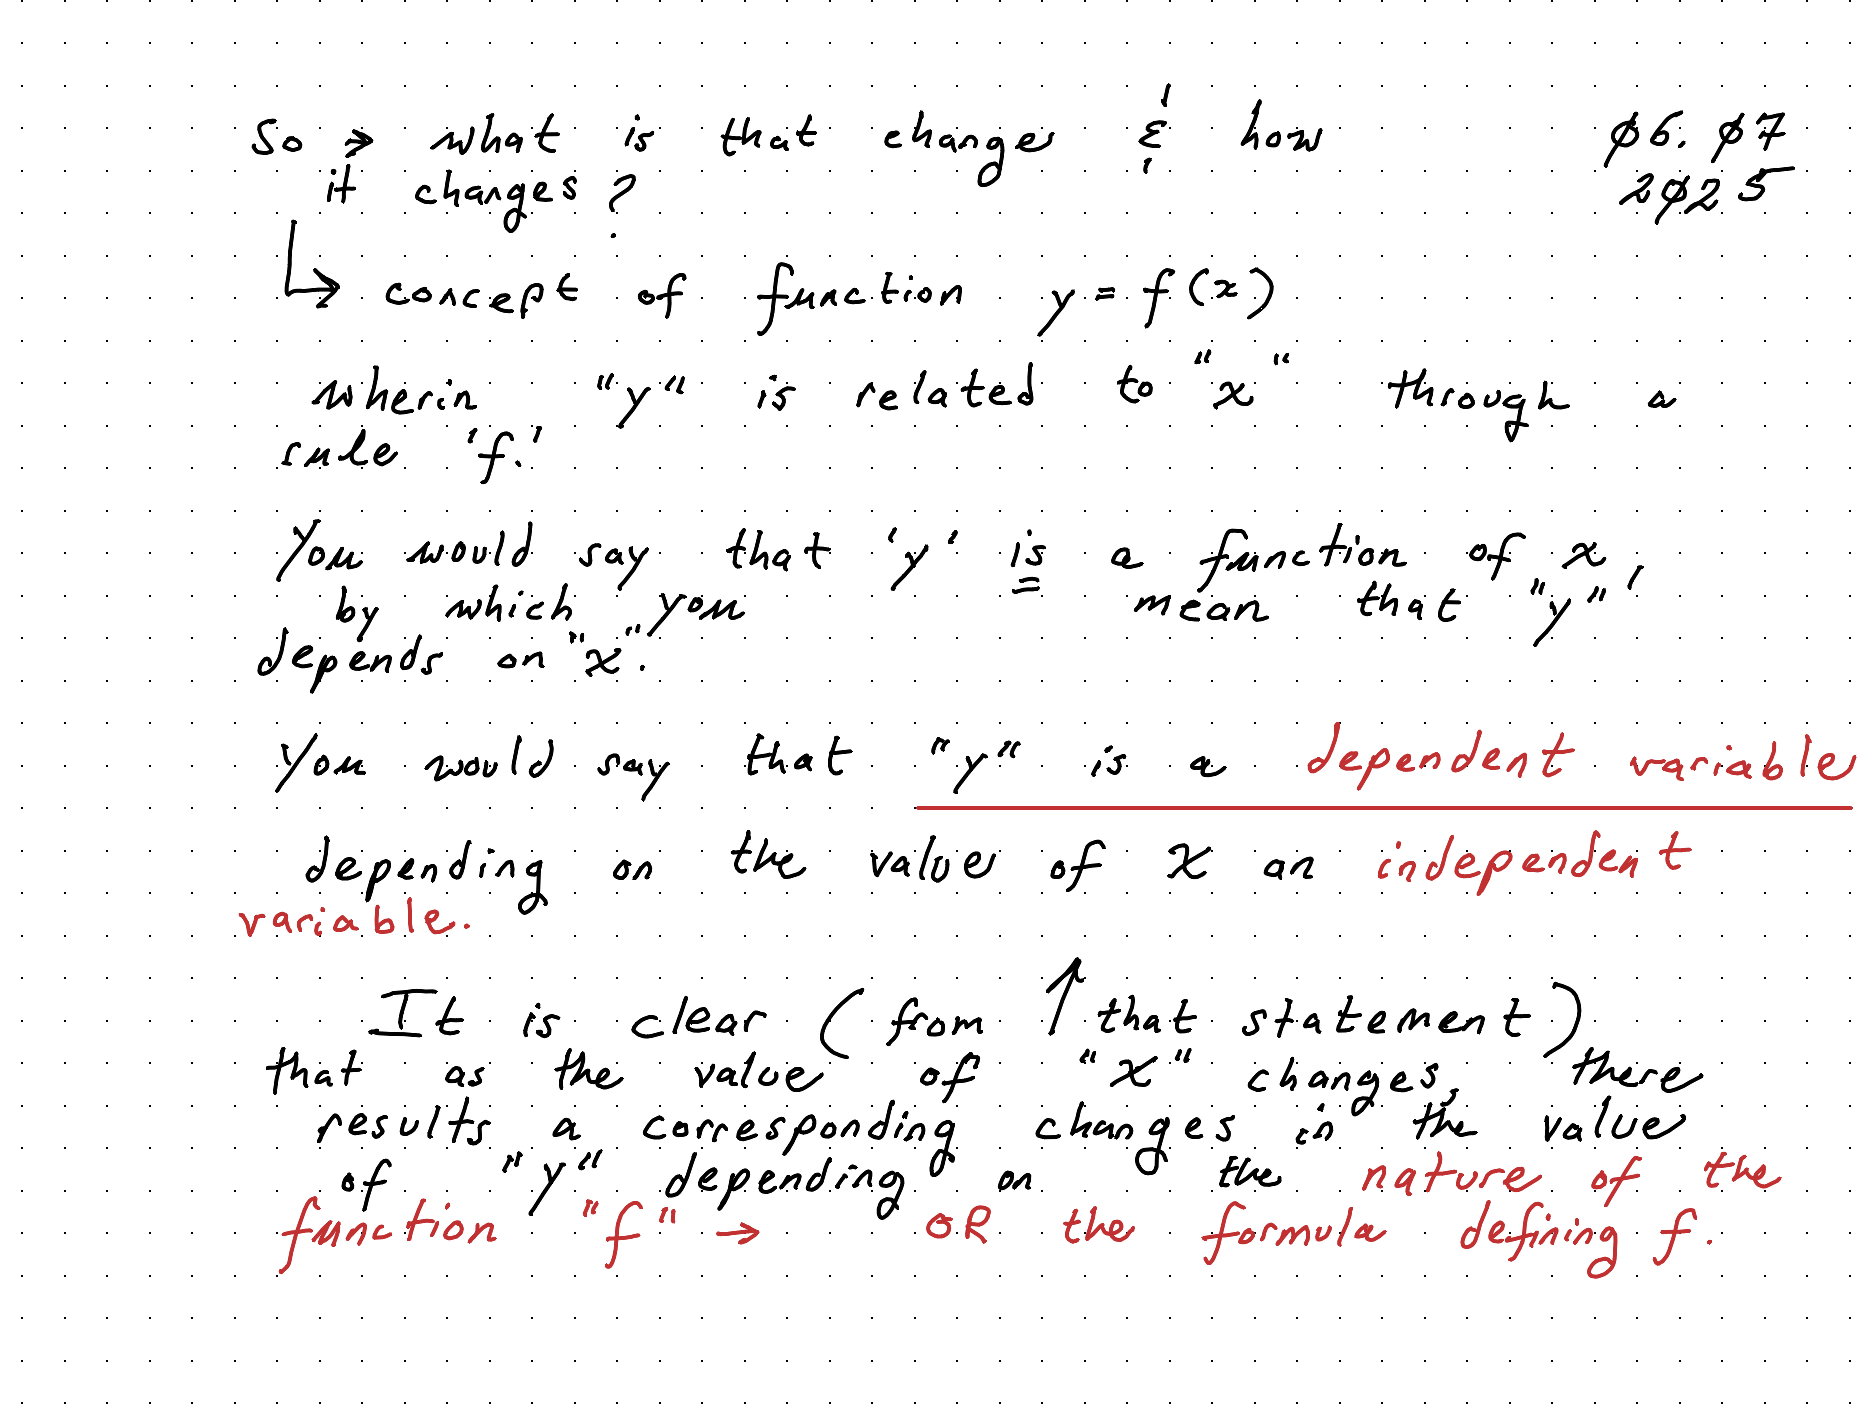 So → what is that change & how
it changes?
ø6. ø7
2ø25
↳ concept of function y = f(x)
wherin "y" is related to "x" through a
rule 'f.'
You would say that 'y' is a function of x,
by which you mean that "y"
depends on "x".
You would say that "y" is a dependent variable
depending on the value of x an independent
variable.
It is clear (from ↑ that statement)
that as the value of "x" changes, there
results a corresponding changes in the value
of "y" depending on the nature of the
function "f" → OR the formula defining f.